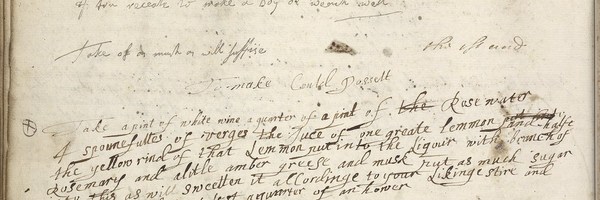 if you receate to make a boy or wench well
Take of as much as will suffise this est and
To make Could Possett
Take a pint of white wine a quarter of a pint of the Rose water
4 spounefulles of verges the Juce of one greate lemmon and halfe
the yellow rind of that Lemmon put into the Liquor with bonch of
Rosemary and alitle amber greese and musk put as much sugar
as will sweeten it accordinge to your Likinge stire and
quarter of an hower